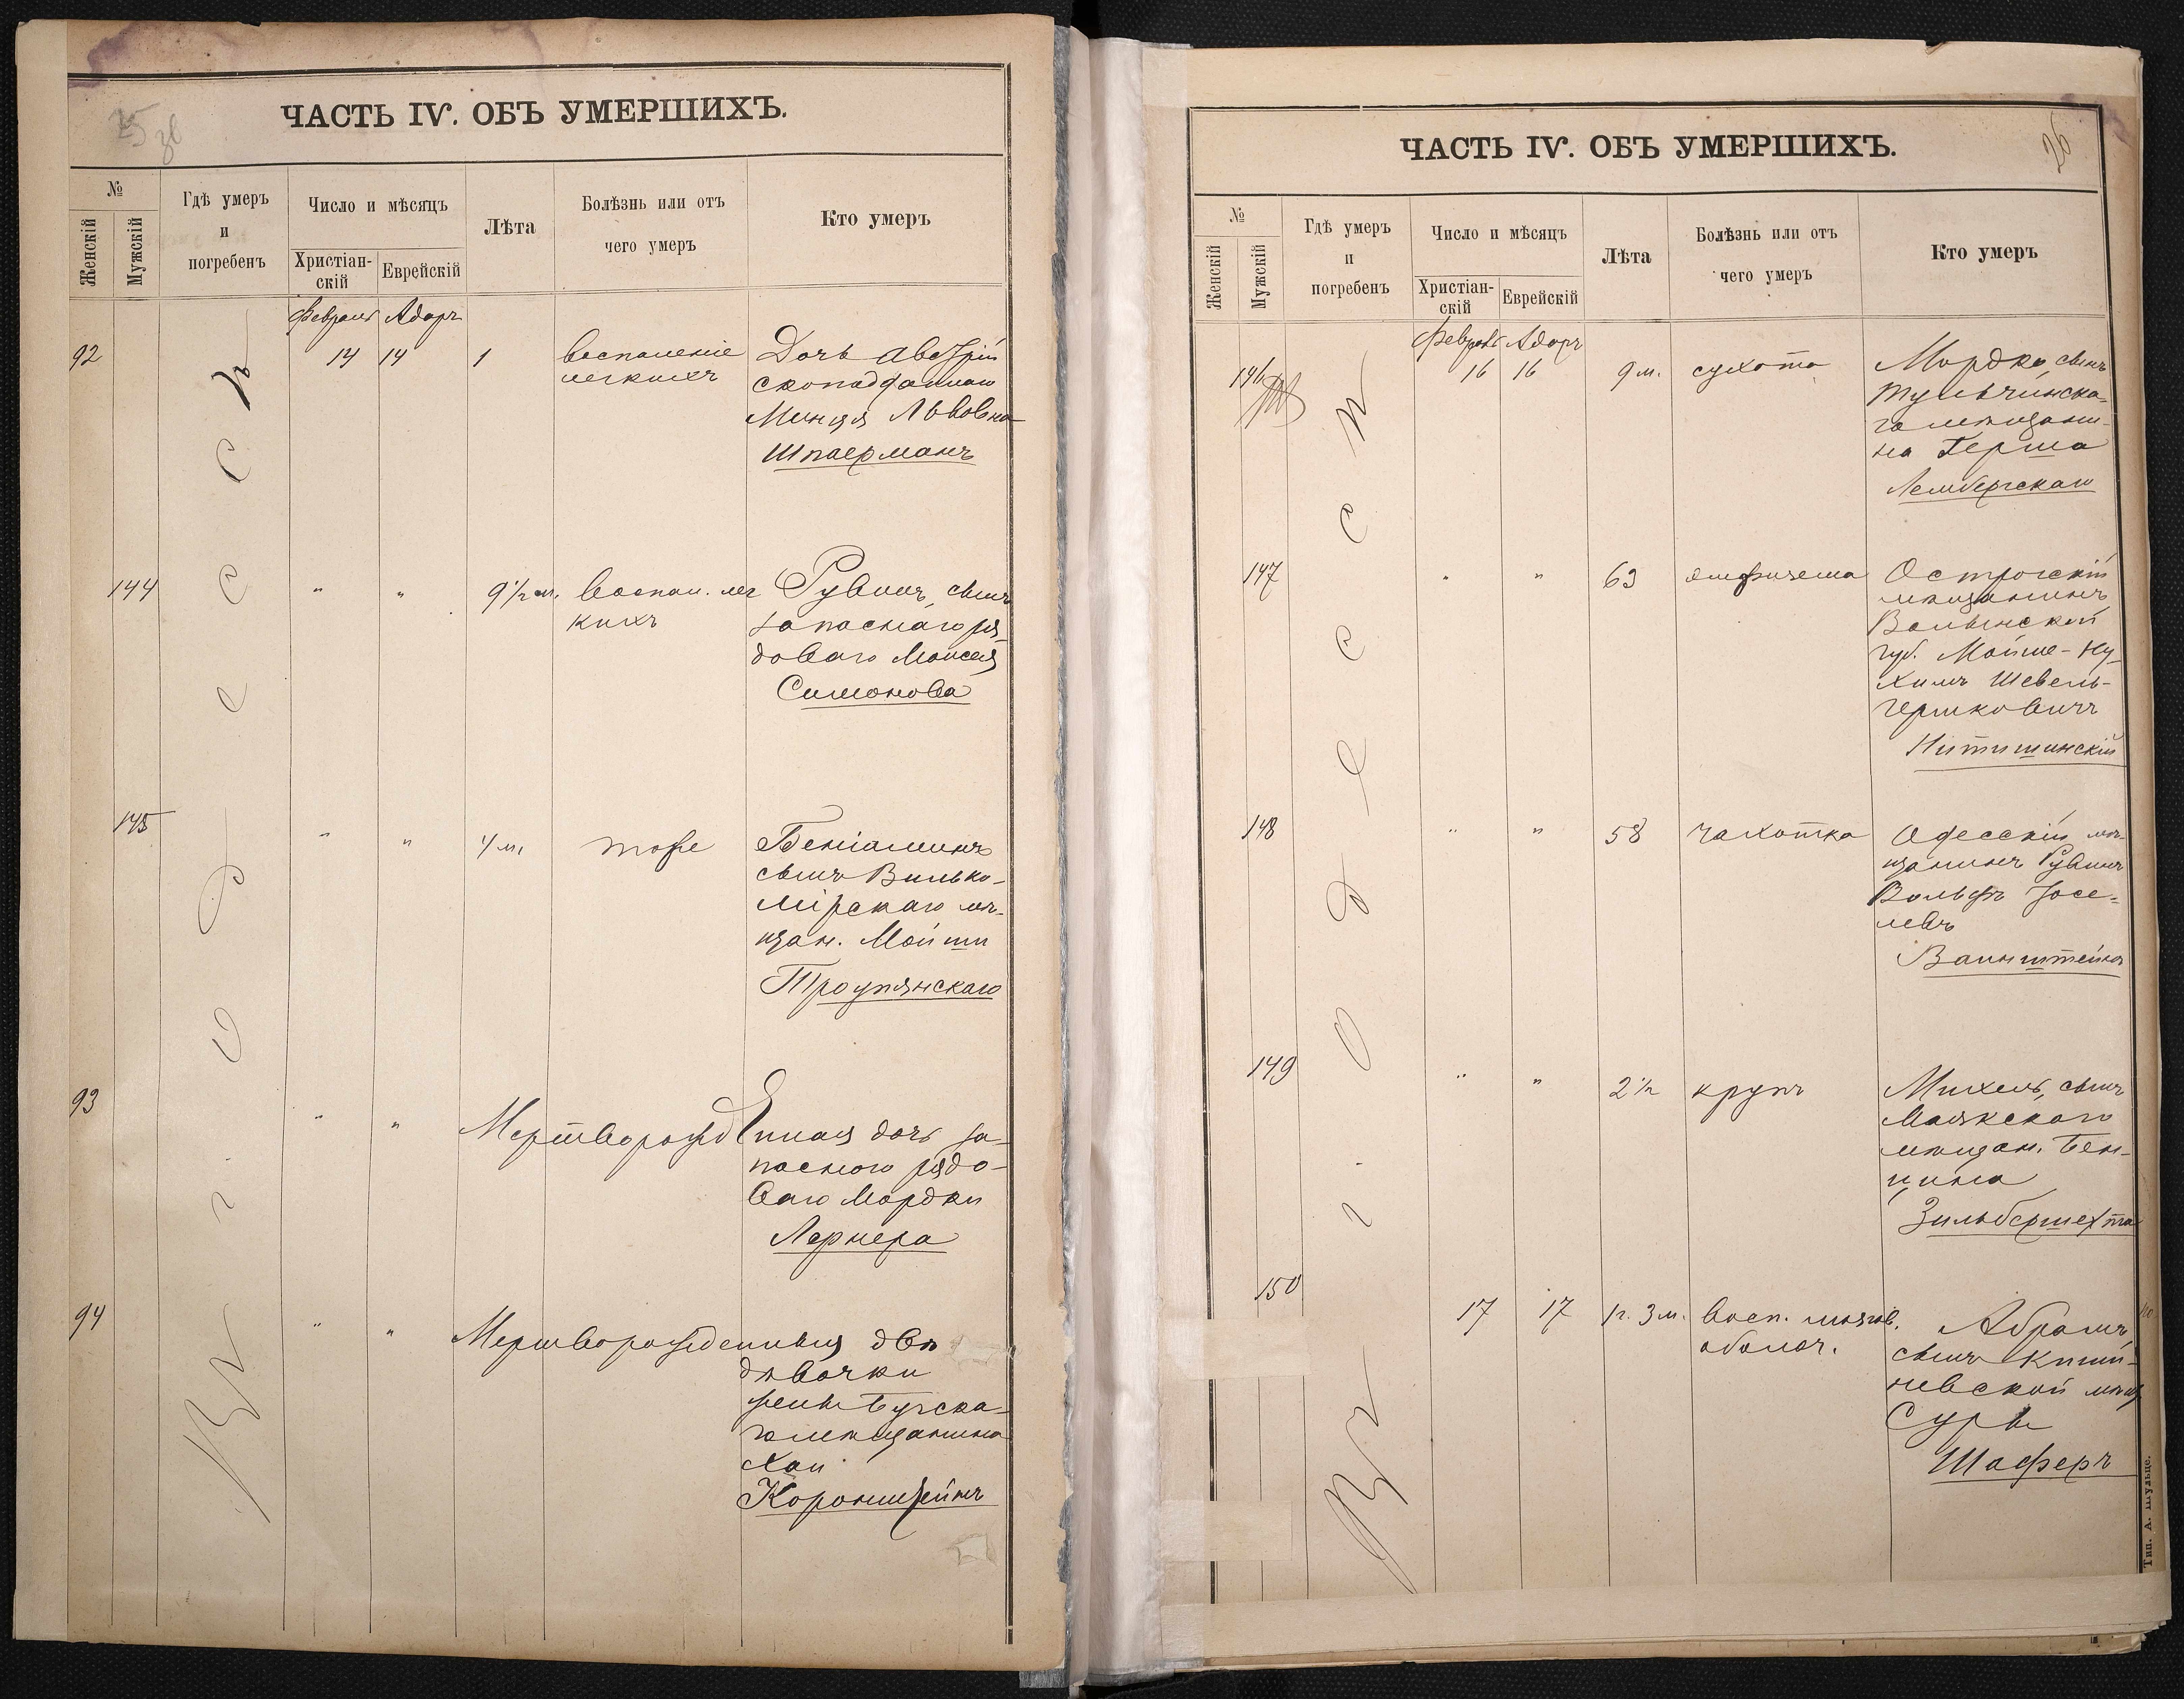 25
ЧАСТЬ IV. ОБЪ УМЕРШИХЪ.
№
Женскій
Мужскій
Гдѣ умеръ
и
погребенъ
Число и мѣсяцъ
Христіан-
скій
Еврейскій
Лѣта
Болѣзнь или отъ
чего умеръ
Кто умеръ
Въ г. Одессѣ
Февраль Адаръ
92 14 14 1 воспаленіе Дочь австрій
легкихъ скоподданнаго
Минця Львовна
Шпаерманъ
144 " " 9 1/2 м. Воспал. лег Рувинъ, сынъ
кихъ запаснаго ря-
доваго Моисея
Симонова
145 " " 4 м. тоже Беніаминъ
сынъ Вилько-
мірскаго мѣ-
щан. Мойши
Троупянскаго
93 " " Мертворожденная дочь за-
паснаго рядо-
ваго Мордки
Лернера
94 " " Мертворожденныя двѣ
дѣвочки
жены Бугска-
го мѣщанина
Хаи
Коронштейнъ
26
ЧАСТЬ IV. ОБЪ УМЕРШИХЪ.
№
Женскій
Мужскій
Гдѣ умеръ
и
погребенъ
Число и мѣсяцъ
Христіан-
скій
Еврейскій
Лѣта
Болѣзнь или отъ
чего умеръ
Кто умеръ
Въ г. Одессѣ
Февраль Адаръ
146 16 16 9 м. сухота Мордко, сынъ
Тульчинска-
го мѣщани-
на Герша
Лембергскаго
147 " " 63 эмфизема Острогскій
мѣщанинъ
Волынской
губ. Мойше-Ну-
химъ Шевель-
Гершковичъ
Нитишинскій
148 " " 58 чахотка Одесскій мѣ-
щанинъ Рувинъ
Вольфъ Іосе-
левъ
Ваинштейнъ
149 " " 2 1/2 крупъ Михель, сынъ
Маякскаго
мѣщан. Бен-
циона
Зильбершехта
150 17 17 1 г. 3 м. Восп. мозгов. Абрамъ,
оболоч. сынъ Киши-
невской мѣщ
Суры
Шаферъ
Тип. А. Шульце.